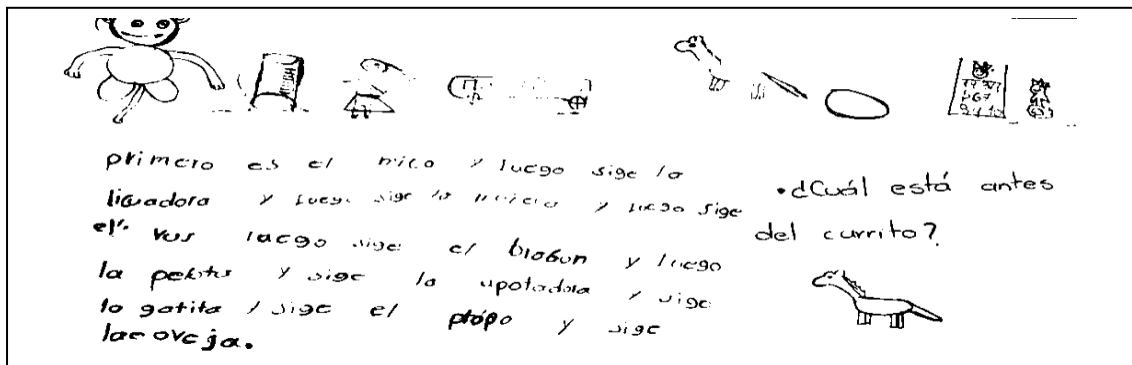 primero es el mico y luego sige la
licuadora y luego sige la muñeca y luego sige
el bus luego sige el y luego
la y sige la y sige
la gatita y sige el y sige
la oveja.
•¿Cuál está antes
del currito?